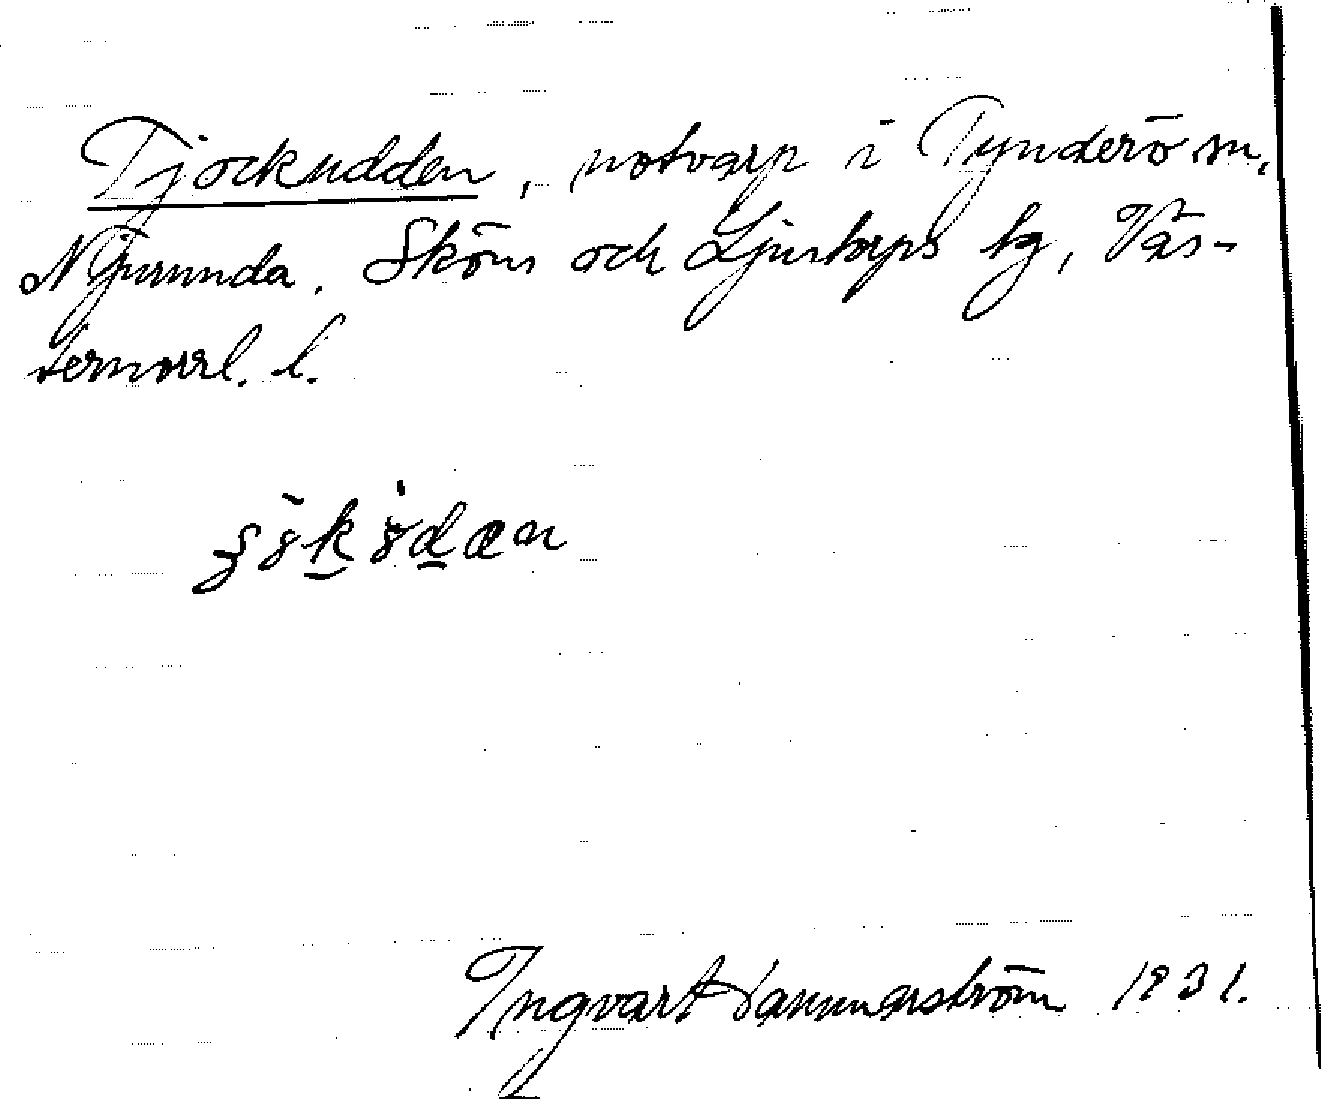 Tjockudden, notvarp i Tynderö sn,
Njurunda, Sköns och Ljustorps tg, Väs-
ternorrl. l.
Ingvart Hammarström 1931.